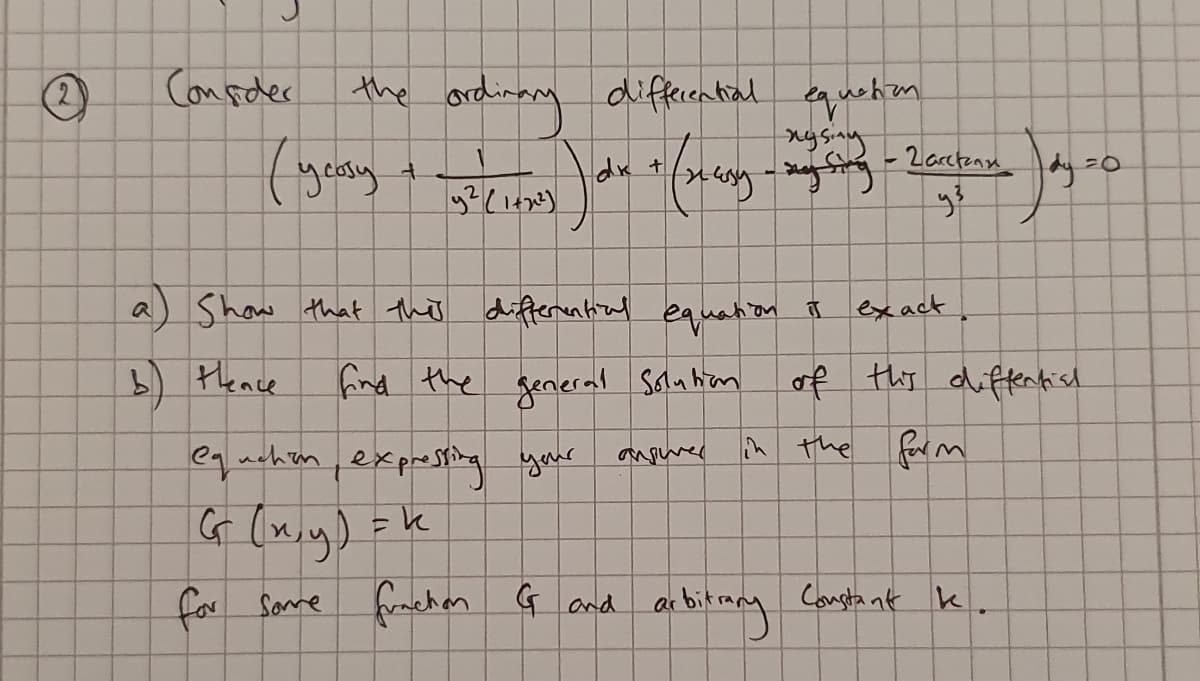 ② Consider the ordinary differential equation
(ycosy + 1/(y²(1+x²))) dx + (xcosy - xysiny - 2arctanx/y³) dy = 0
a) Show that this differential equation is exact.
b) Hence find the general solution of this diffential
equation, expressing your answer in the form
G (x,y) = k
for some function G and arbitrary constant k.